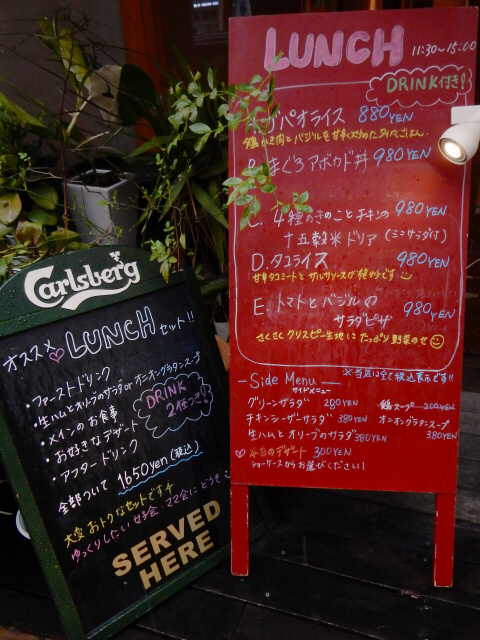 LUNCH 11:30~15:00
DRINK付き!
パオライス 880YEN
鶏ひき肉とバジルを甘辛く炒めたタイごはん。
まぐろアボカド丼 980YEN
C. 4種のきのことチキンの 980YEN
十五穀米ドリア (ミニサラダ付)
D. タコライス 980YEN
甘辛タコミートとサルサソースが決め手です
E. トマトとバジルの 980YEN
サラダピザ
さくさくクリスピー生地にたっぷり野菜のせ
※当店は全て税込表示です!!
Side Menu
サイドメニュー
グリーンサラダ 280YEN
チキンシーザーサラダ 380YEN
生ハムとオリーブのサラダ 380YEN
本日のデザート 300YEN
ショーケースからお選びください!
鶏スープ 200YEN
オニオングラタンスープ
380YEN
Carlsberg
オススメ LUNCH セット!!
・ファーストドリンク
・生ハムとオリーブのサラダor オニオングラタンスープ
・メインのお食事
・お好きなデザート
・アフタードリンク
DRINK
2杯つき!
全部ついて 1650yen(税込)
大変おトクなセットです
ゆっくりしたい女子会・ママ会にどうぞ
SERVED
HERE